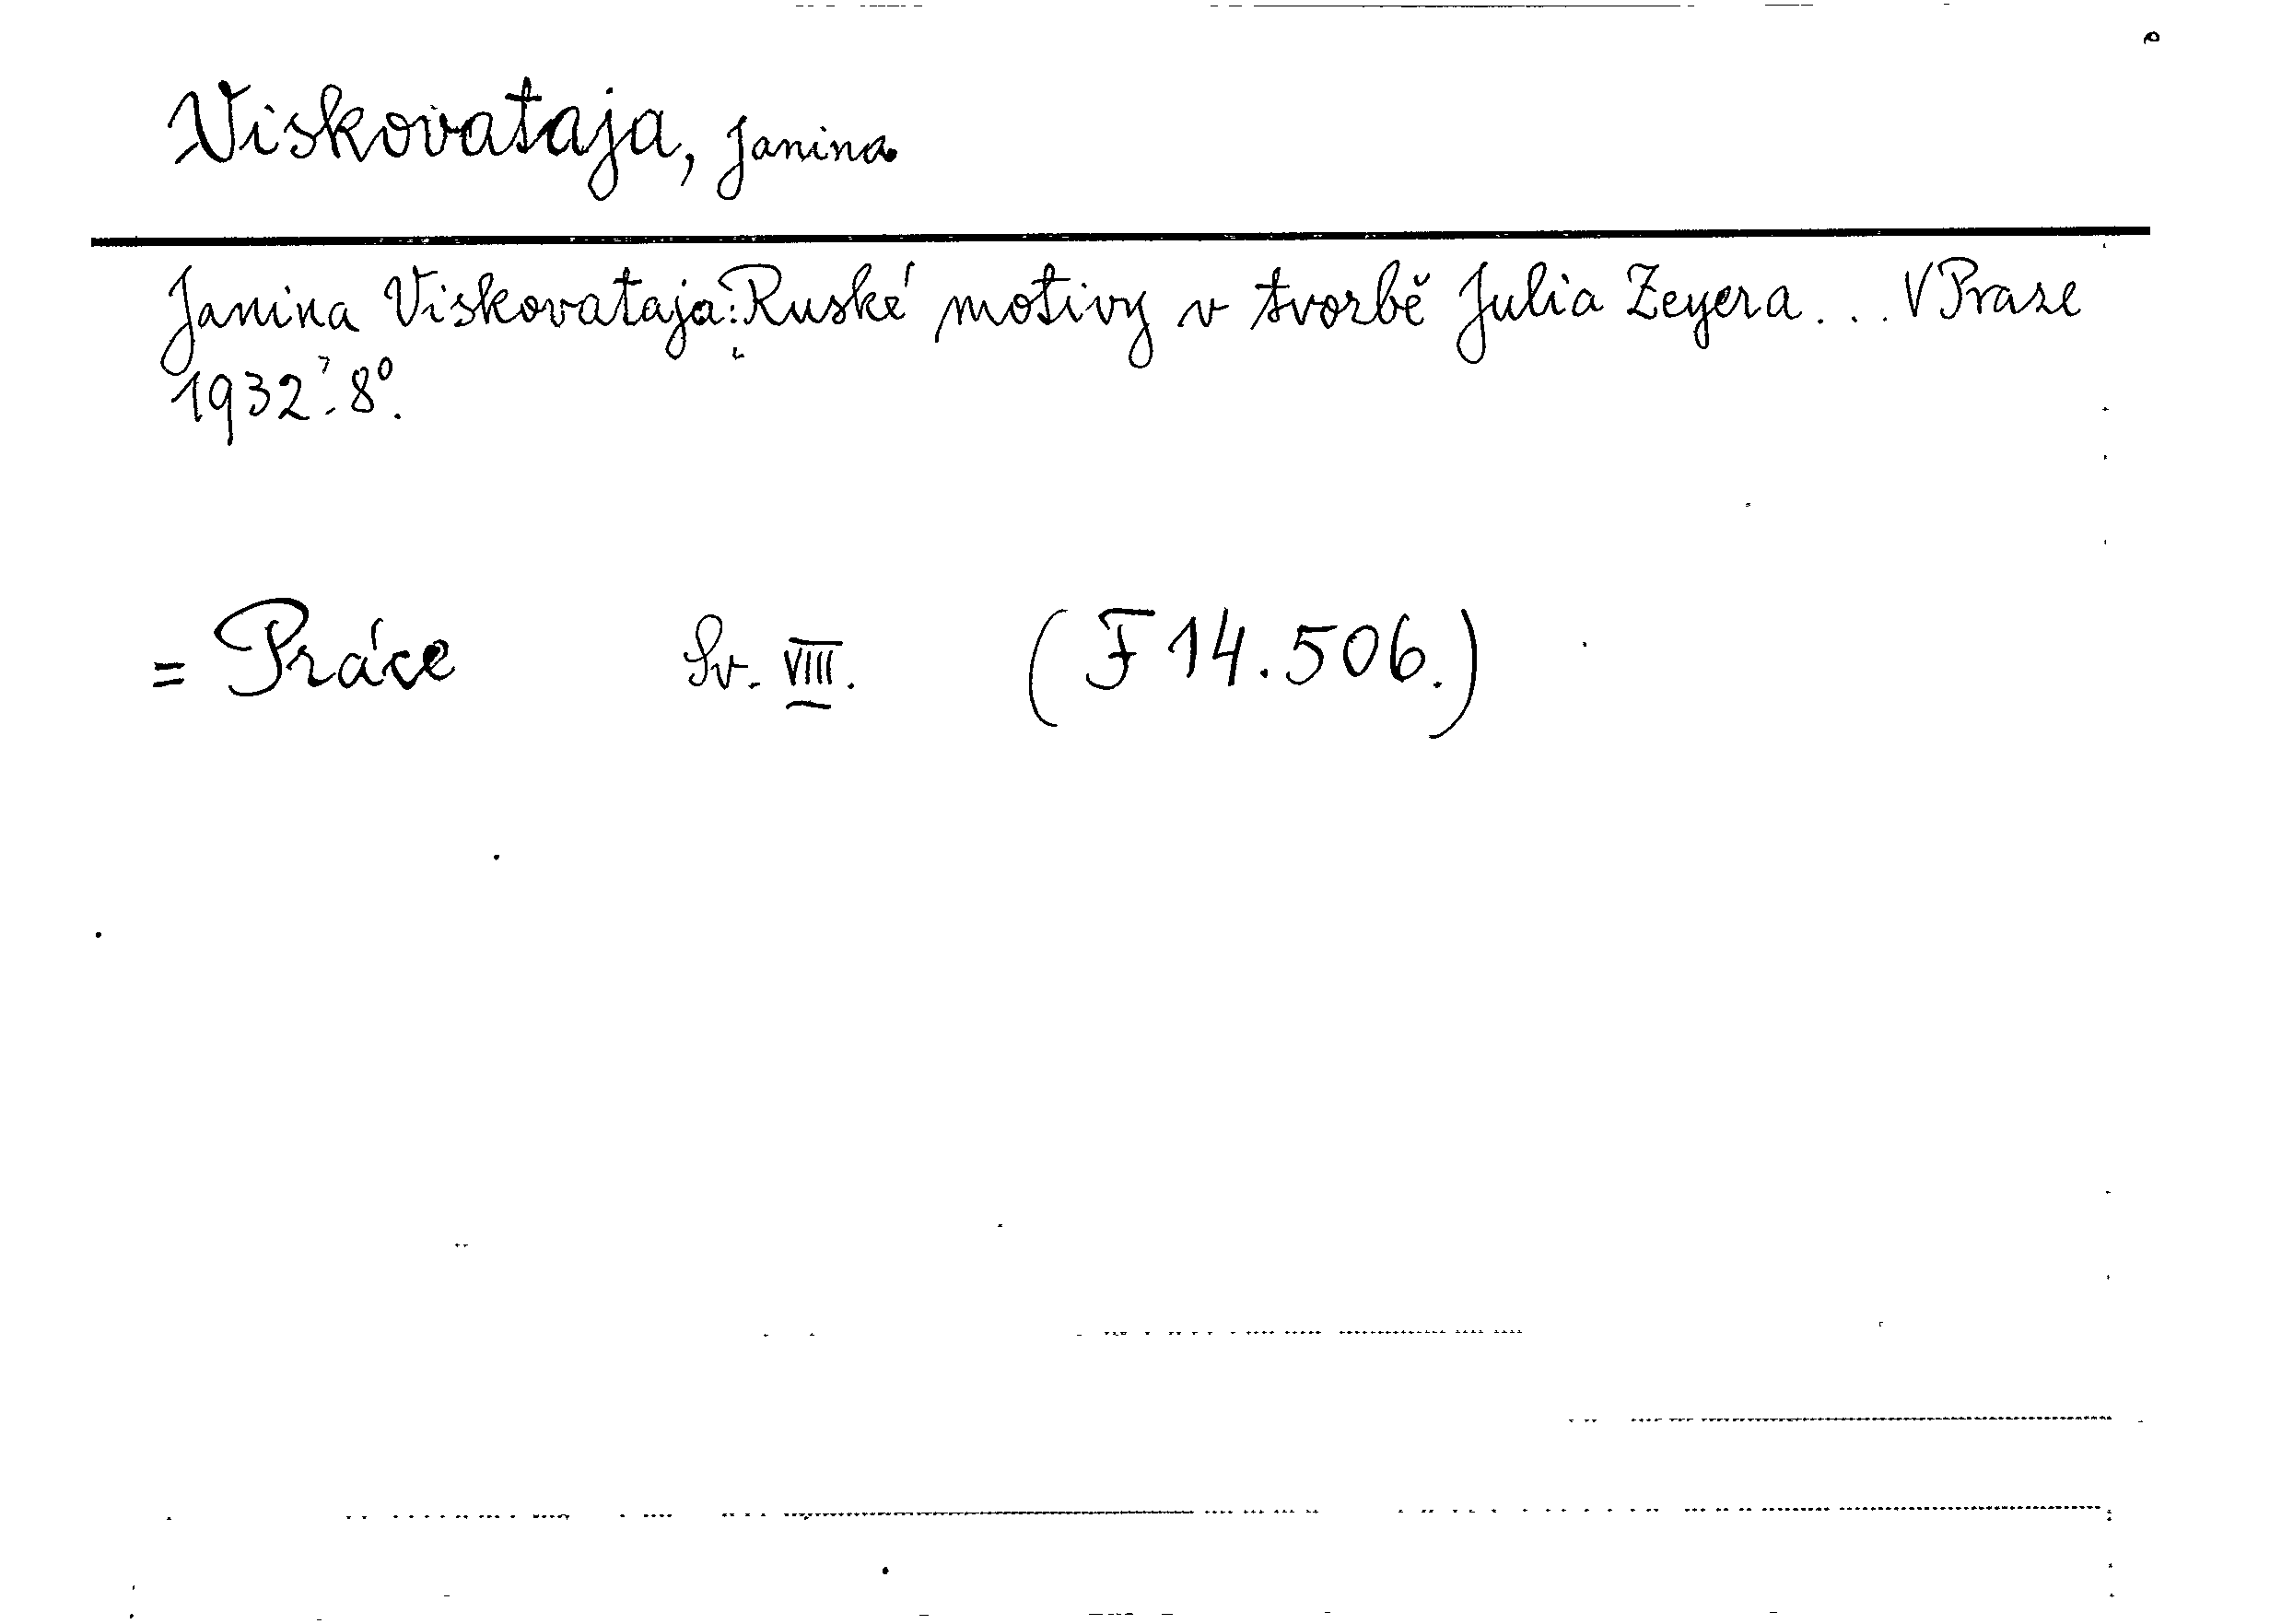 Viskovataja, Janina
Janina Viskovataja: Ruské motivy v tvorbě Julia Zeyera... V Praze
1932. 8°.
= Práce Sv. VIII. (F 14.506.)